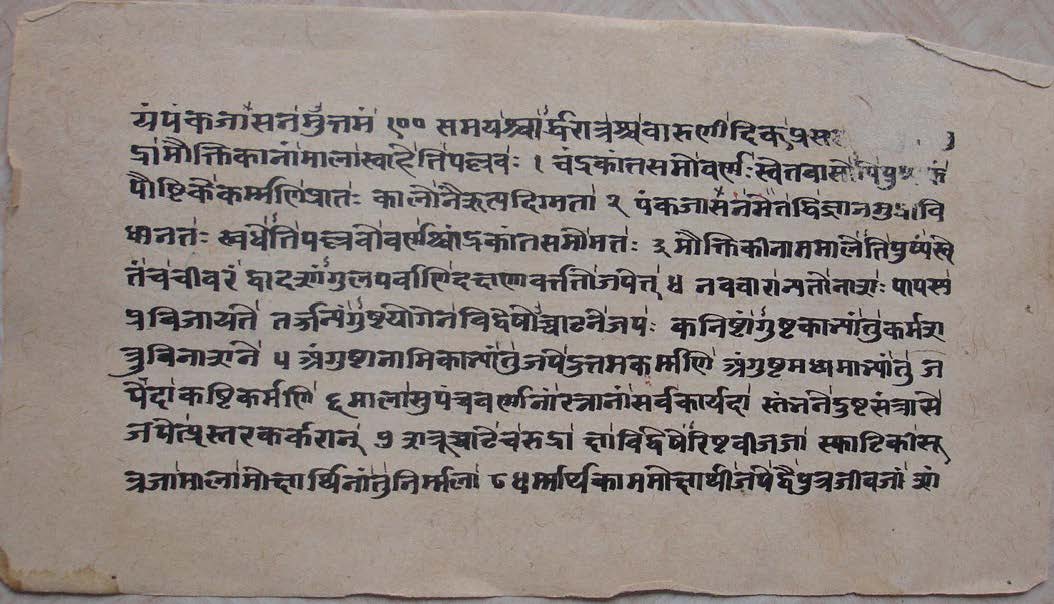 यं पंकजासनमुत्तमं १०० समयश्चार्द्धरात्रश्च वारुणीदिक्प्रस
द्रा मौक्तिकानां माला स्वाहेति पल्लवः १ चंद्रकांतसमोवर्णः स्वेतवासो
पौष्टिके कर्म्मणि प्रातः कालो नैरृत्यदिग्मता २ पंकजासनमेतद्धि ज्ञानमुद्रावि
धानतः स्वधेति पल्लवो वर्णश्चांद्रकांतसमोमतः ३ मौक्तिकीनाममालेति पुष्पंस्वे
तं च चीवरं द्वादशांगुलपर्वाणि दक्षणावर्त्ततो जपेत् ४ नववारांन्यतोनाशः पापस्या
प्रविजायते तर्ज्जन्यंगुष्टयोगेन विद्वेषोच्चाटने जपः कनिष्टांगुष्टकाभ्यां तु कर्मशा
त्रुविनाशने ५ अंगुष्टानामिकाभ्यां तु जपेदुत्तमकर्म्मणि अंगुष्टमध्यमाभ्यां तु ज
पेदाकष्टिकर्मणि ६ मालासु पंचवर्ण्णानां रत्नानां सर्वकार्यदा स्तंभने दुष्टसंत्रासे
जपेत्प्रस्तरकर्करान् ७ शत्रूच्चाटे च रुद्राक्षा विद्वेषेरिष्टबीजजा स्फाटिकी सू
त्रजा माला मोक्षार्थिनां तु निर्म्मला ८ धर्म्मार्थकाममोक्षार्थी जपेद्वै पुत्रजीवजां शां